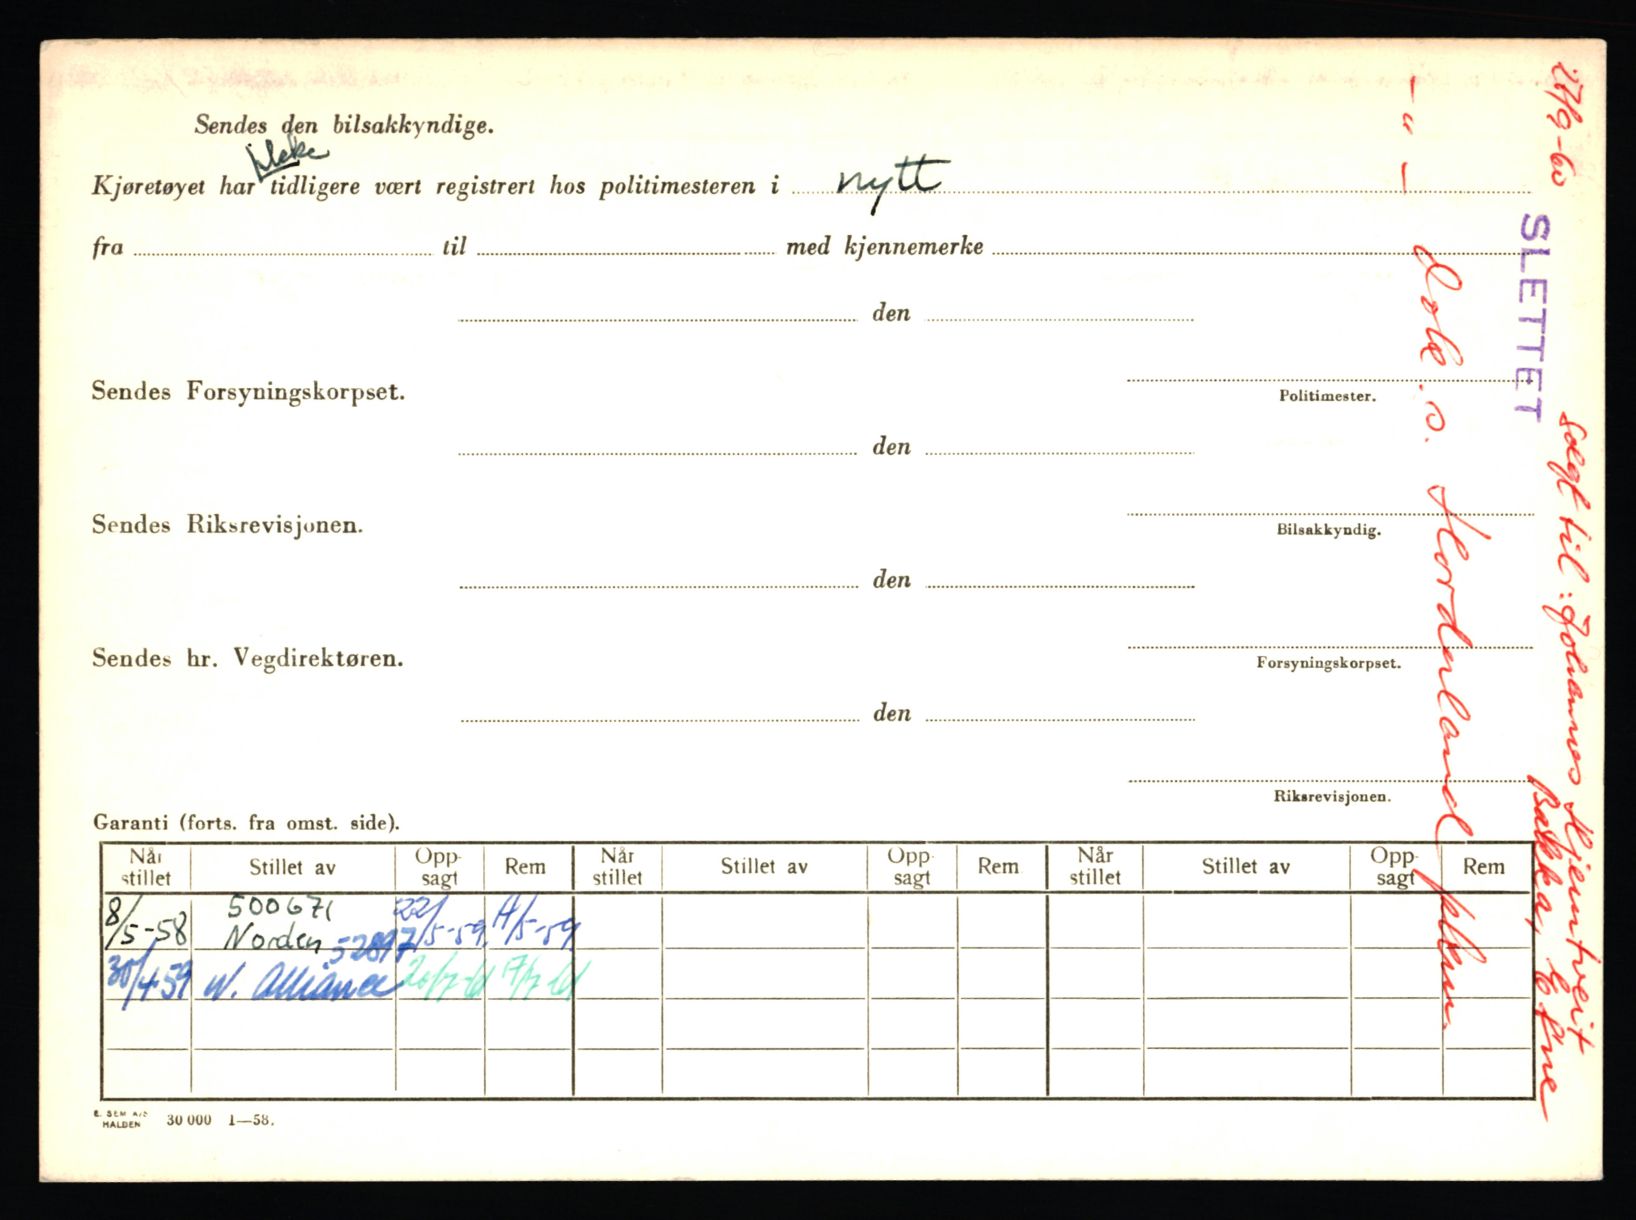 Sendes den bilsakkyndige.
ikke
Kjøretøyet har tidligere vært registrert hos politimesteren i nytt
fra til med kjennemerke
den
Politimester.
Sendes Forsyningskorpset.
den
Bilsakkyndig.
Sendes Riksrevisjonen.
den
Forsyningskorpset.
Sendes hr. Vegdirektøren.
den
Riksrevisjonen.
Garanti (forts. fra omst. side).
Når stillet Stillet av Opp- sagt Rem Når stillet Stillet av Opp- sagt Rem Når stillet Stillet av Opp- sagt Rem
8/5-58 500671 Norden 22/5-59 4/5-59
30/4-59 N. Alliance 52897 20/7-61 17/7-61
E. SEM A/S HALDEN 30 000 1—58.
27/9-60 SLETTET Solgt til: Johannes Hjemtveit
Bakka, Etne
- " - Hordaland